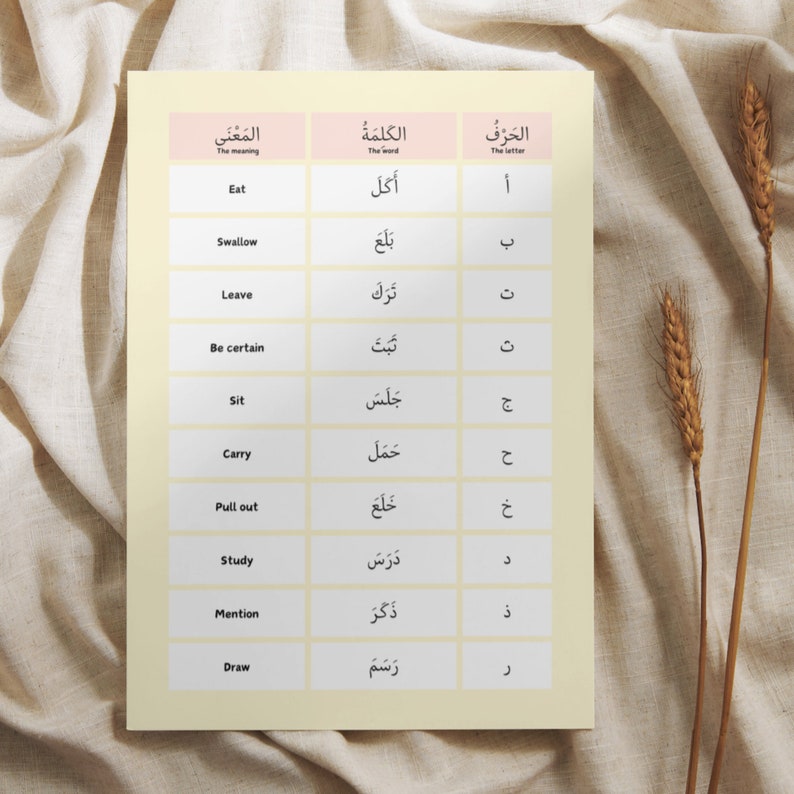 الحَرْفُ الكَلِمَةُ المَعْنَى
The letter The word The meaning
أ أَكَلَ Eat
ب بَلَعَ Swallow
ت تَرَكَ Leave
ث ثَبَتَ Be certain
ج جَلَسَ Sit
ح حَمَلَ Carry
خ خَلَعَ Pull out
د دَرَسَ Study
ذ ذَكَرَ Mention
ر رَسَمَ Draw